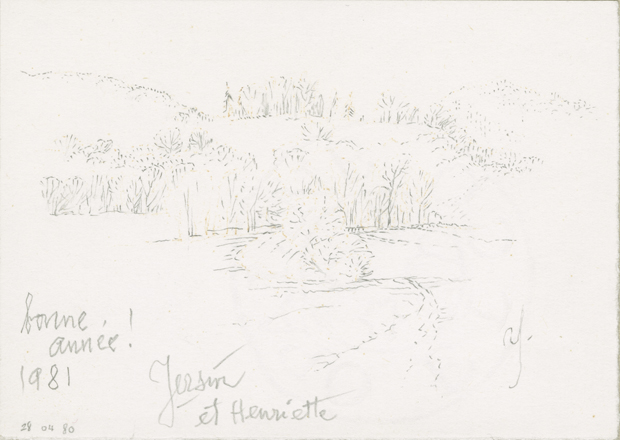 bonne
année!
1981
Gérard
et Henriette
28 04 80